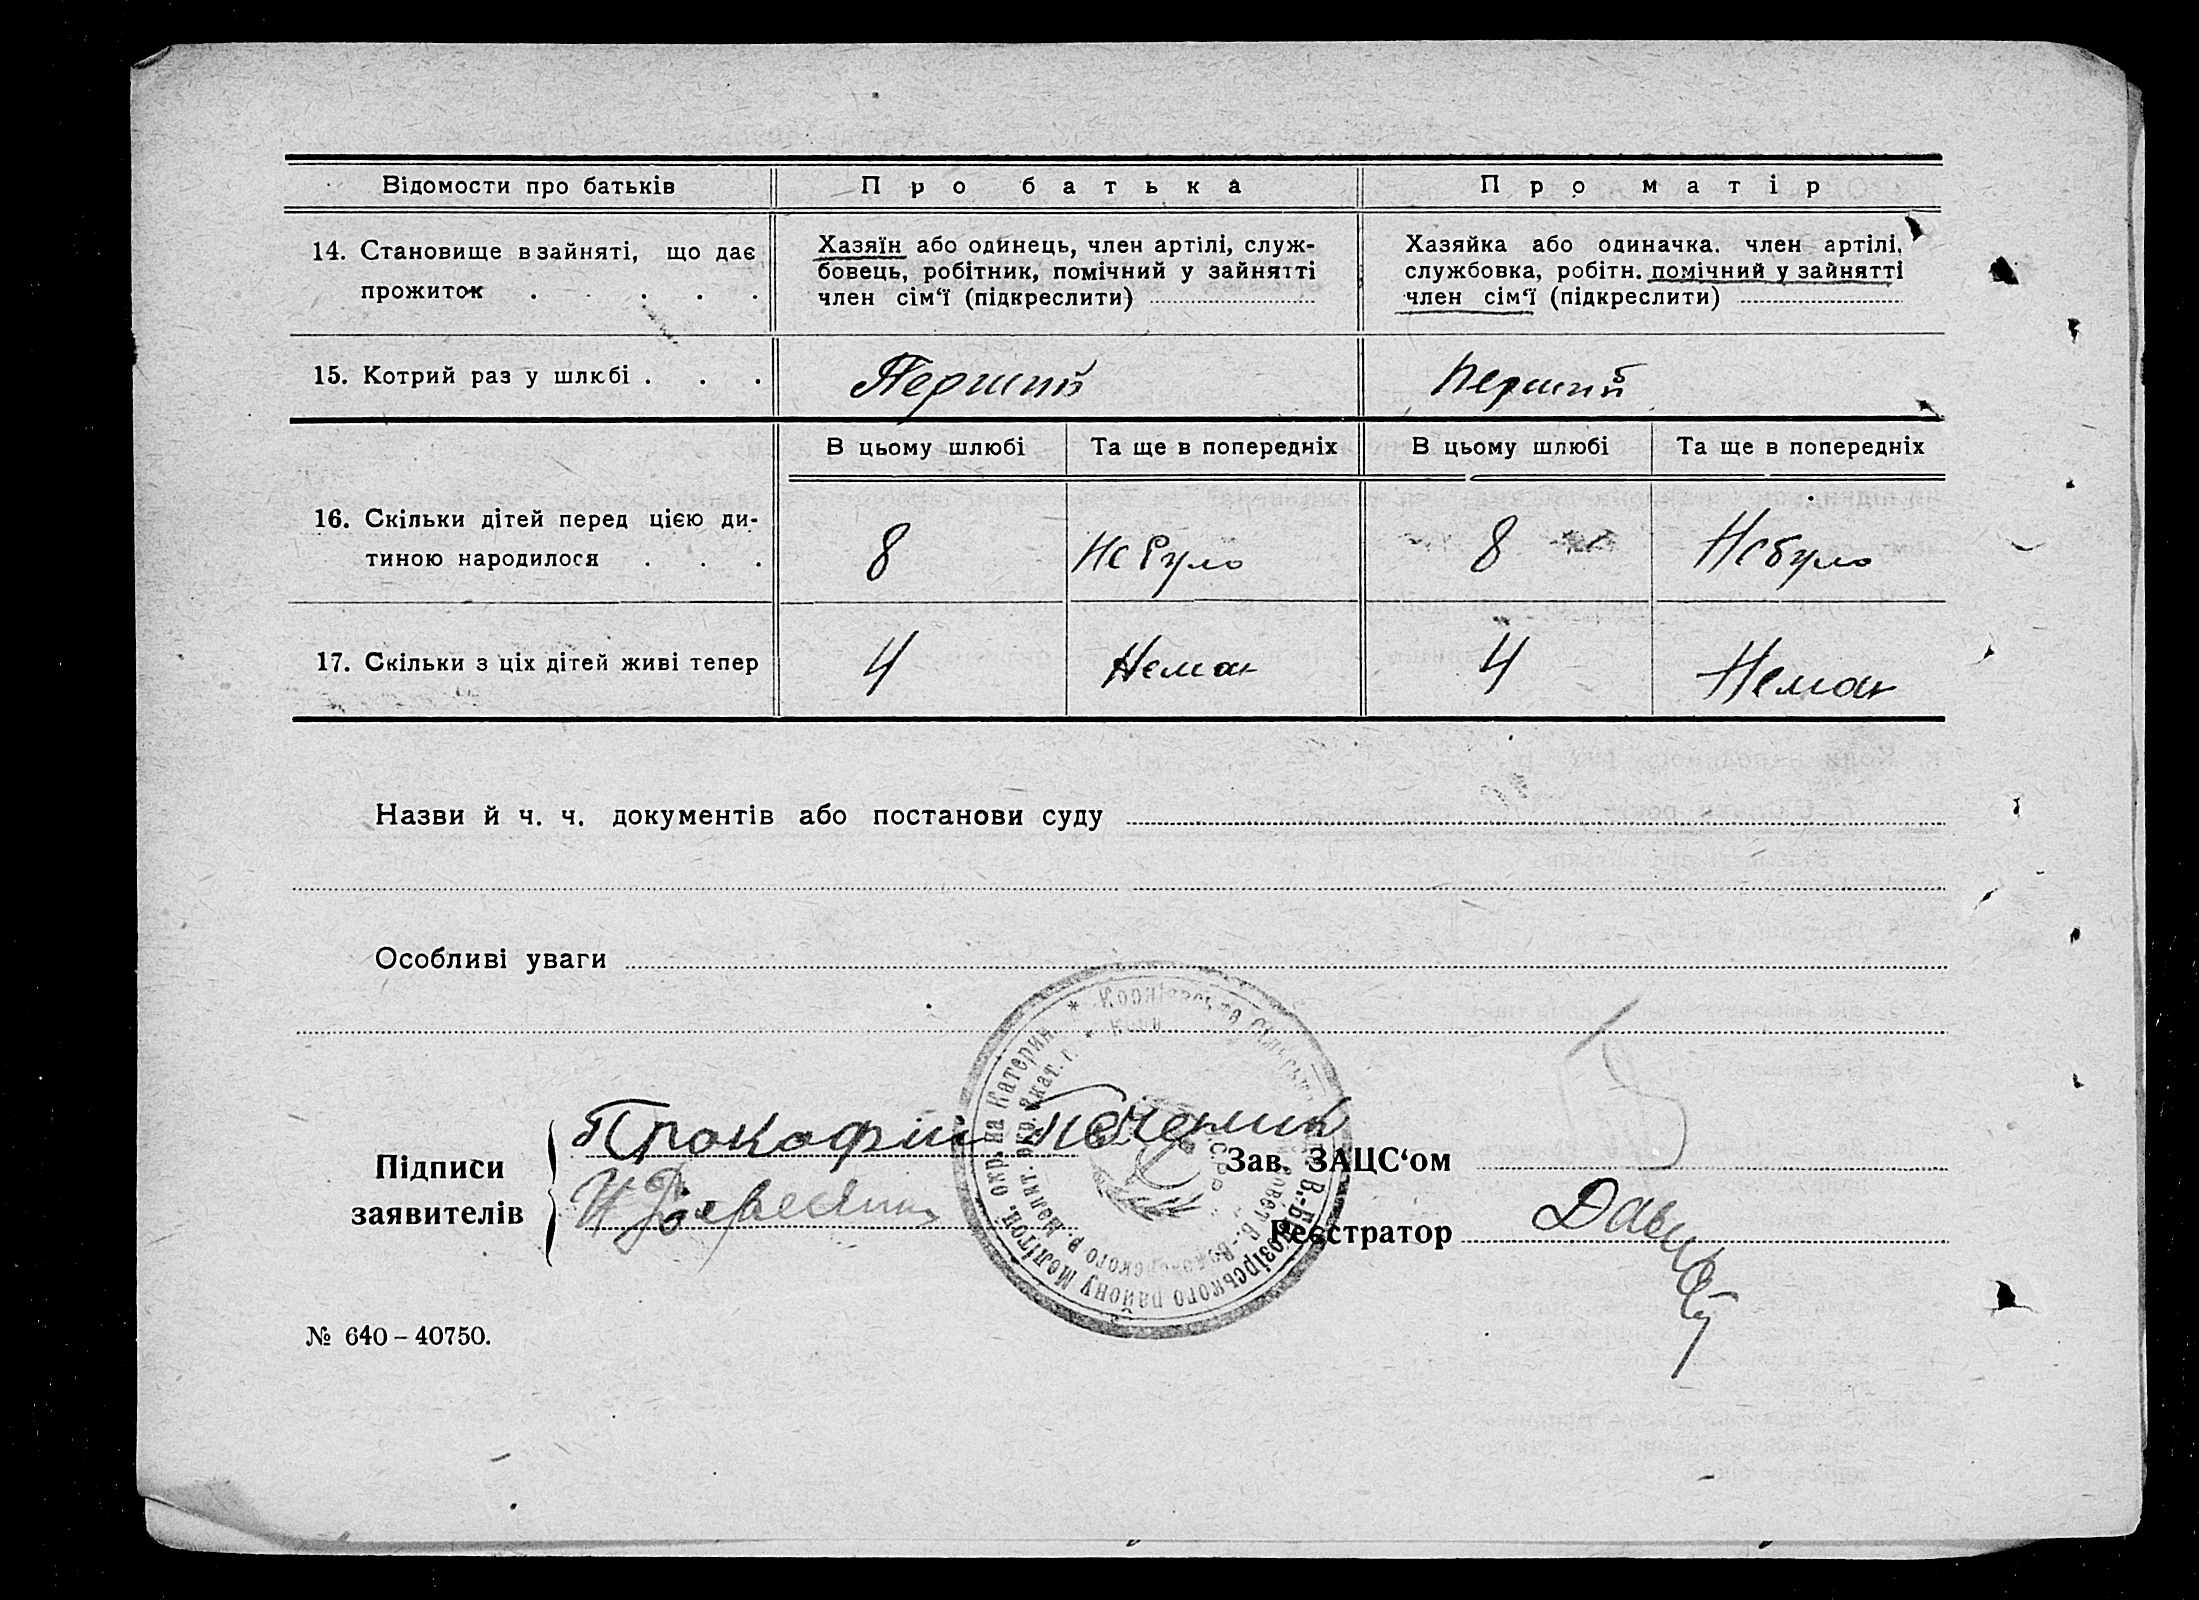 Відомости про батьків
Про батька
Про матір
14. Становище в зайняті, що дає
прожиток . . . . .
Хазяїн або одинець, член артілі, служ-
бовець, робітник, помічний у зайнятті
член сім‘ї (підкреслити)
Хазяйка або одиначка, член артілі,
службовка, робітн. помічний у зайнятті
член сім‘ї (підкреслити)
15. Котрий раз у шлюбі . . .
Перший
Перший
В цьому шлюбі
Та ще в попередніх
В цьому шлюбі
Та ще в попередніх
16. Скільки дітей перед цією ди-
тиною народилося . . .
8
Не було
8
Небуло
17. Скільки з ціх дітей живі тепер
4
Немає
4
Немає
Назви й ч. ч. документів або постанови суду
Особливі уваги
Підписи
заявителів
Прокофій
Зав. ЗАЦС‘ом
Реєстратор
В.-Білозірського району Мелітоп. окр. на Катерин.
№ 640 – 40750.